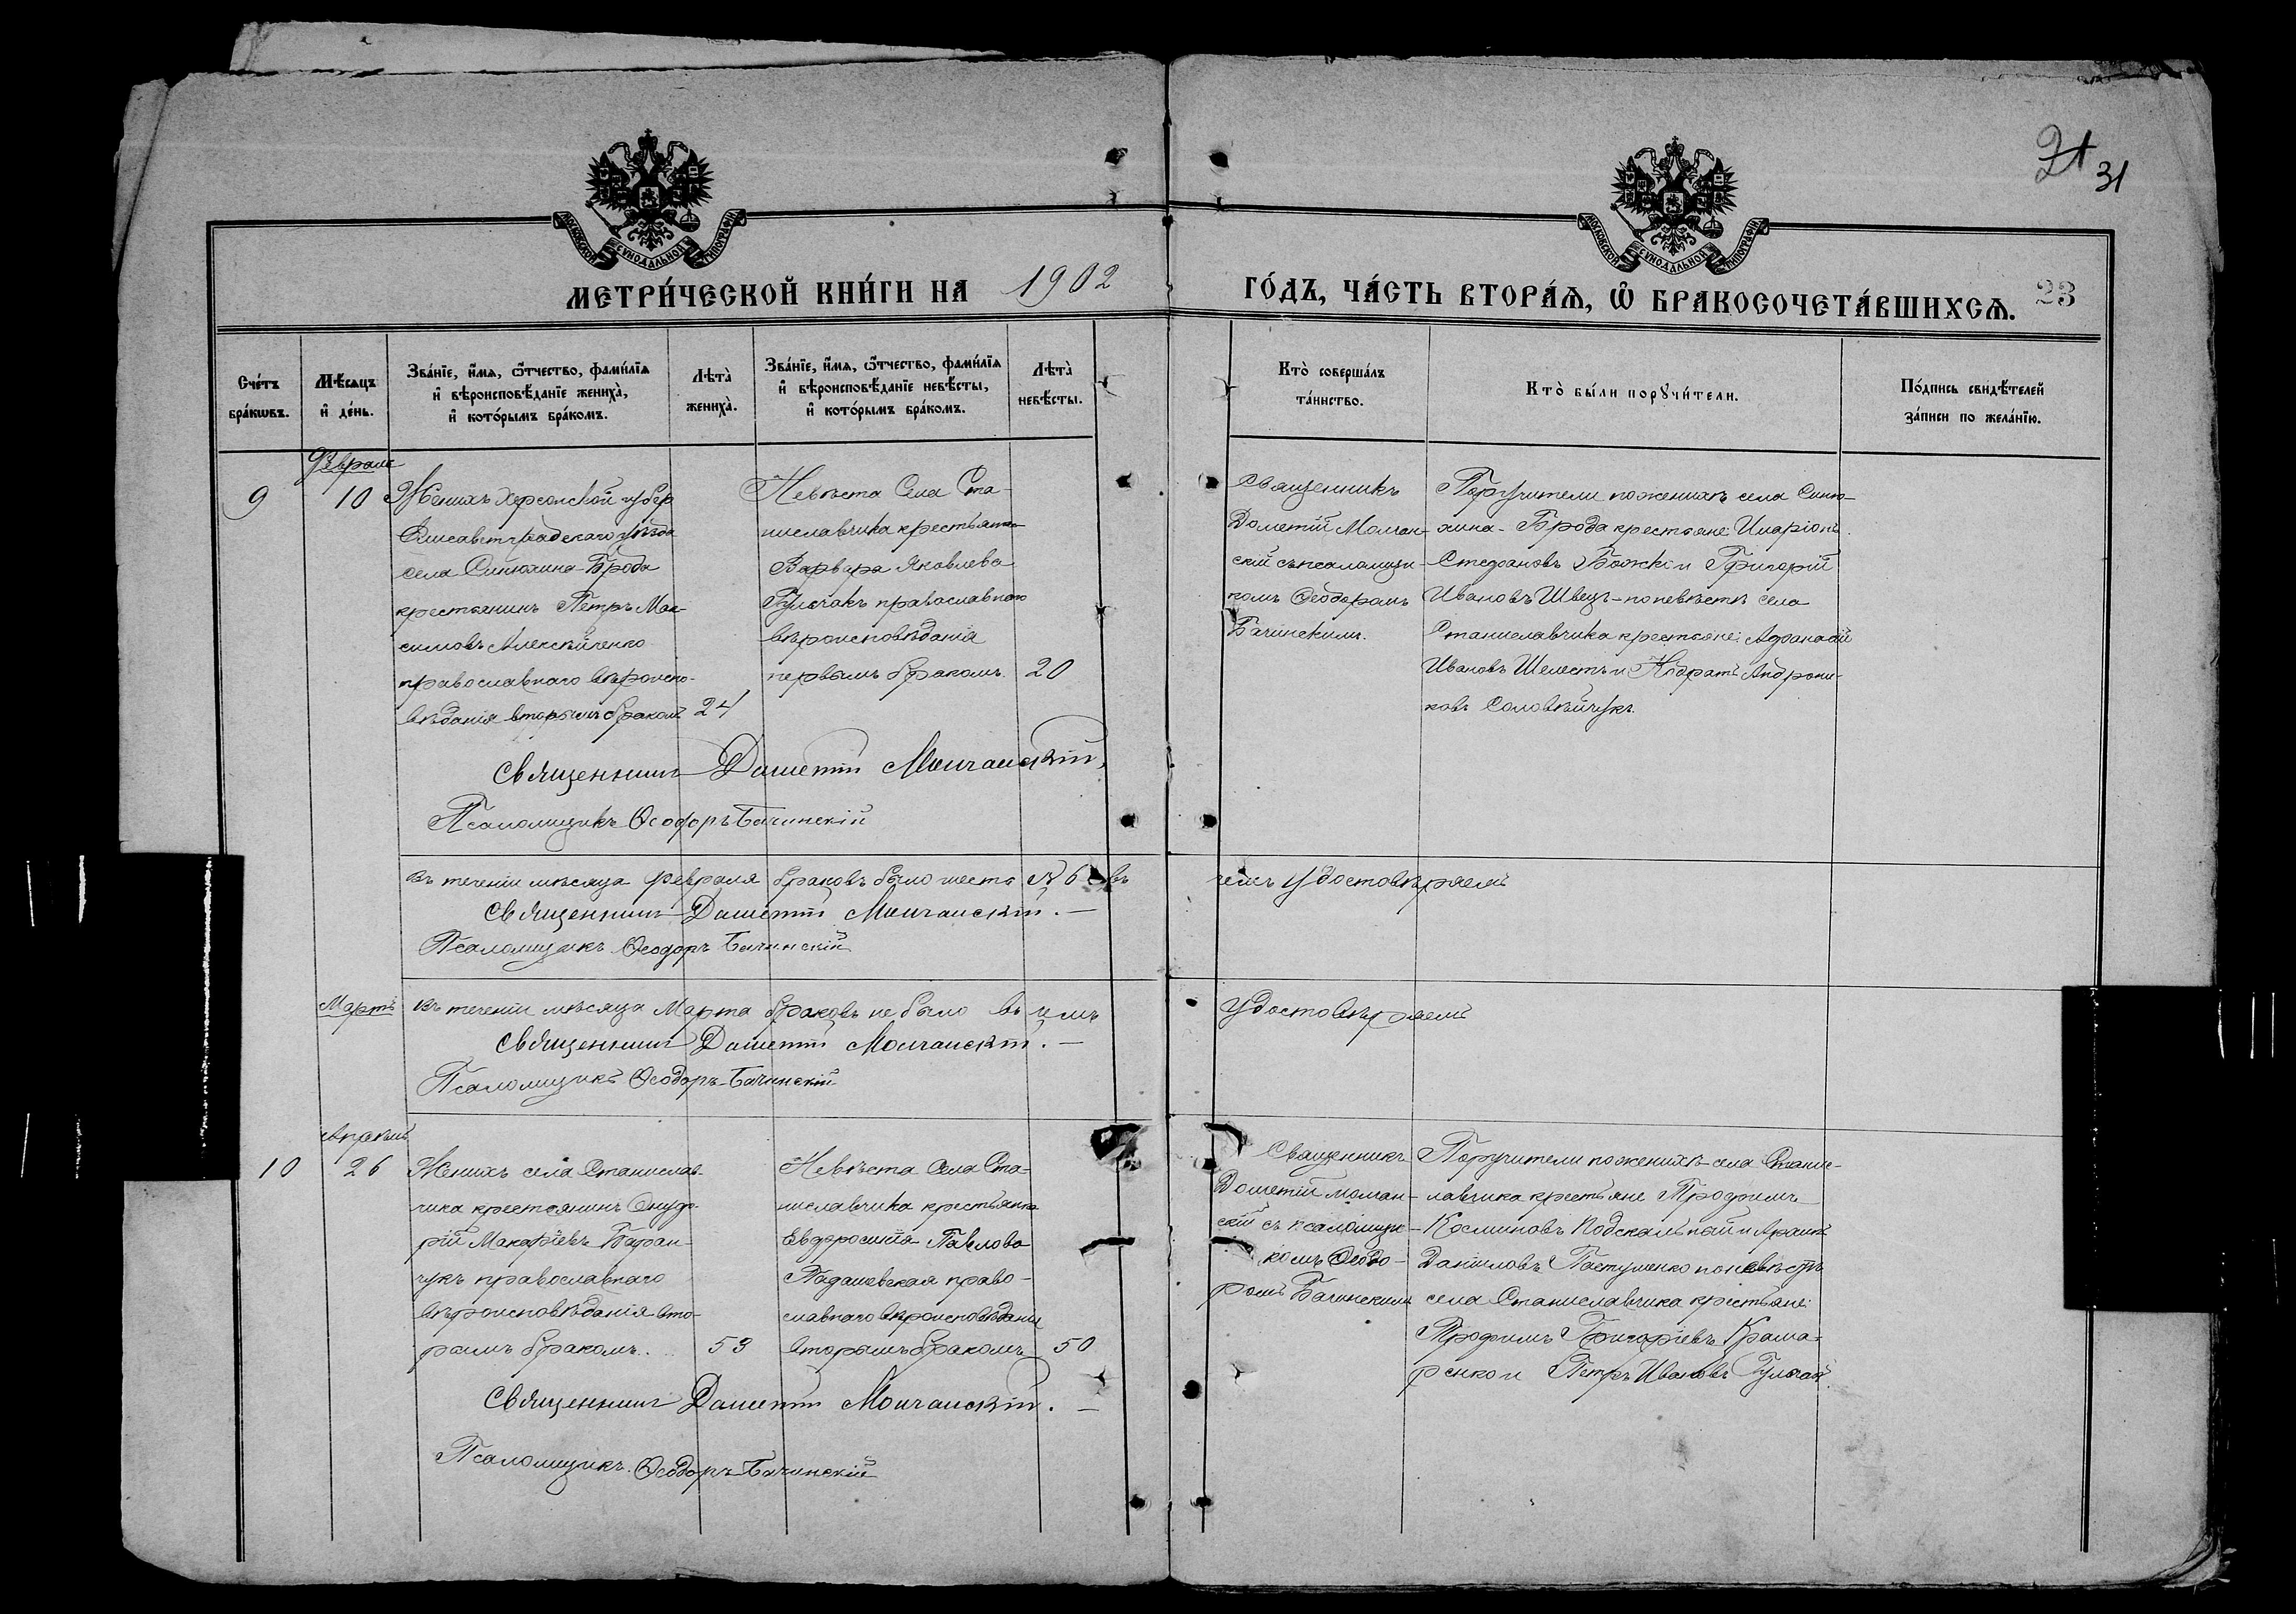 31
МОСКОВСКОЙ СУНОДАЛЬНОЙ ТИПОГРАФІИ
МОСКОВСКОЙ СУНОДАЛЬНОЙ ТИПОГРАФІИ
МЕТРИ́ЧЕСКОЙ КНИ́ГИ НА 1902
ГО́ДЪ, ЧА́СТЬ ВТОРА́Ѧ, Ѽ БРАКОСОЧЕТА́ВШИХСѦ. 23
Сче́тъ
бра́кѡвъ.
Мѣ́сяцъ
и҆ де́нь.
Зва́нїе, и҆́мя, ѻ҆́тчество, фами́лїя
и҆ вѣроисповѣ́данїе жениха̀,
и҆ кото́рымъ бра́комъ.
Лѣта̀
жениха̀.
Зва́нїе, и҆́мя, ѻ҆́тчество, фами́лїя
и҆ вѣроисповѣ́данїе невѣ́сты,
и҆ кото́рымъ бра́комъ.
Лѣта̀
невѣ́сты.
Кто̀ соверша́лъ
та́инство.
Кто̀ бы́ли порꙋчи́тели.
По́дпись свидѣ́телей
за́писи по жела́нїю.
Февраль
9
10
Женихъ Херсонской губер
Елисаветградскаго уѣзда
села Синюхина-Брода
крестьянинъ Петръ Мак-
симовъ Алексѣйченко
православнаго вѣроиспо-
вѣданія вторымъ бракомъ 24
Невѣста Села Ста-
ниславчика крестьянка
Варвара Яковлева
православнаго
вѣроисповѣданія
первымъ бракомъ. 20
Священникъ
Дометій Молчан-
скій съ псаломщи-
комъ Ѳеодоромъ
Бачинскимъ.
Поручители по женихѣ села Синю-
хина-Брода крестьяне: Иларіонъ
Стефановъ Божко и Григорій
Ивановъ Швецъ – по невѣстѣ села
Станиславчика крестьяне: Афанасій
Ивановъ Шелестъ и Андрони-
ковъ Соловѣйчукъ.
Священникъ Дометій Молчанскій.
Псаломщикъ Ѳеодоръ Бачинскій
Въ теченіи мѣсяца февраля браковъ было шесть 6 въ чемъ удостовѣряемъ
Священникъ Дометій Молчанскій. –
Псаломщикъ Ѳеодоръ Бачинскій
Мартъ
Въ теченіи мѣсяца Марта браковъ не было въ чемъ удостовѣряемъ
Священникъ Дометій Молчанскій. –
Псаломщикъ Ѳеодоръ Бачинскій
Апрѣль
10
26
Женихъ села Станислав-
чика крестьянинъ Онуф-
рій Макаріевъ
православнаго
вѣроисповѣданія вто-
рымъ бракомъ. 53
Невѣста Села Ста-
ниславчика крестьянка
Евфросинія Павлова
право-
славнаго вѣроисповѣданія
вторымъ бракомъ 50
Священникъ
Дометій Молчан-
скій съ псаломщи-
комъ Ѳеодо-
ромъ Бачинскимъ
Поручители по женихѣ села Станис-
лавчика крестьяне Трофимъ
Косминовъ Подскальный и
Даніиловъ Пастушенко по невѣстѣ
села Станиславчика крестьяне:
Трофимъ Григоріевъ Крама-
ренко и Петръ Ивановъ
Священникъ Дометій Молчанскій. –
Псаломщикъ Ѳеодоръ Бачинскій